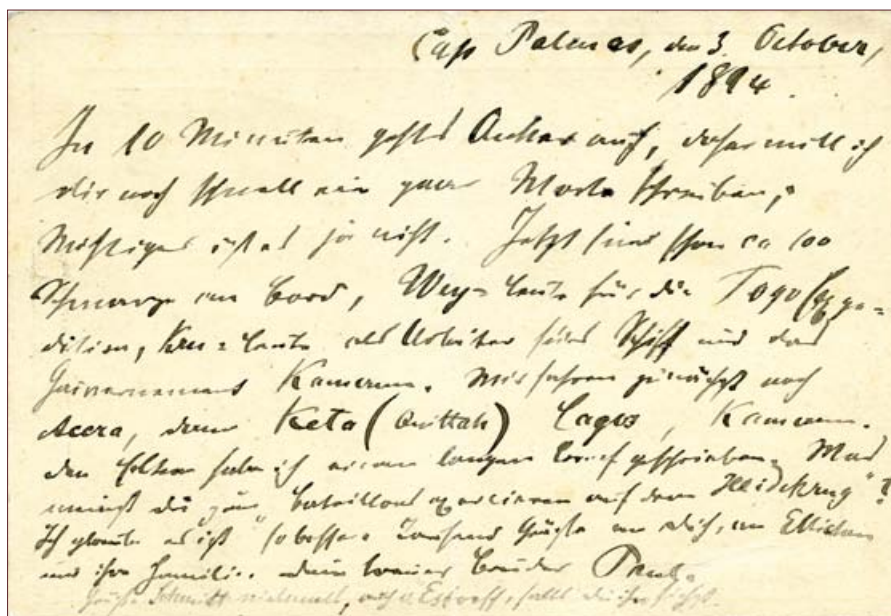 Cap Palmas, den 3. October,
1894.
In 10 Minuten geht's Anker auf, daher will ich
dir noch schnell ein paar Worte schreiben,
Wichtiges ist es ja nicht. Jetzt sind schon ca 100
Schwarze an Bord, Wey-Leute für die Togo Expe=
dition, Kru=Leute als Arbeiter fürs Schiff und das
Gouvernement Kamerun. Wir fahren zunächst nach
Accra, dann Keta (Quittah) Lagos, Kamerun.
Den Eltern habe ich einen langen Brief geschrieben. Was
meinst du zum "Bataillons exerzieren auf dem Heidekrug"?
Ich glaube es ist so besser. Tausend Grüße an dich, an Ellichen
und ihre Familie. dein treuer Bruder Paul.
Grüße Schmitt vielmals, auch v. Estorff, falls du ihn siehst.